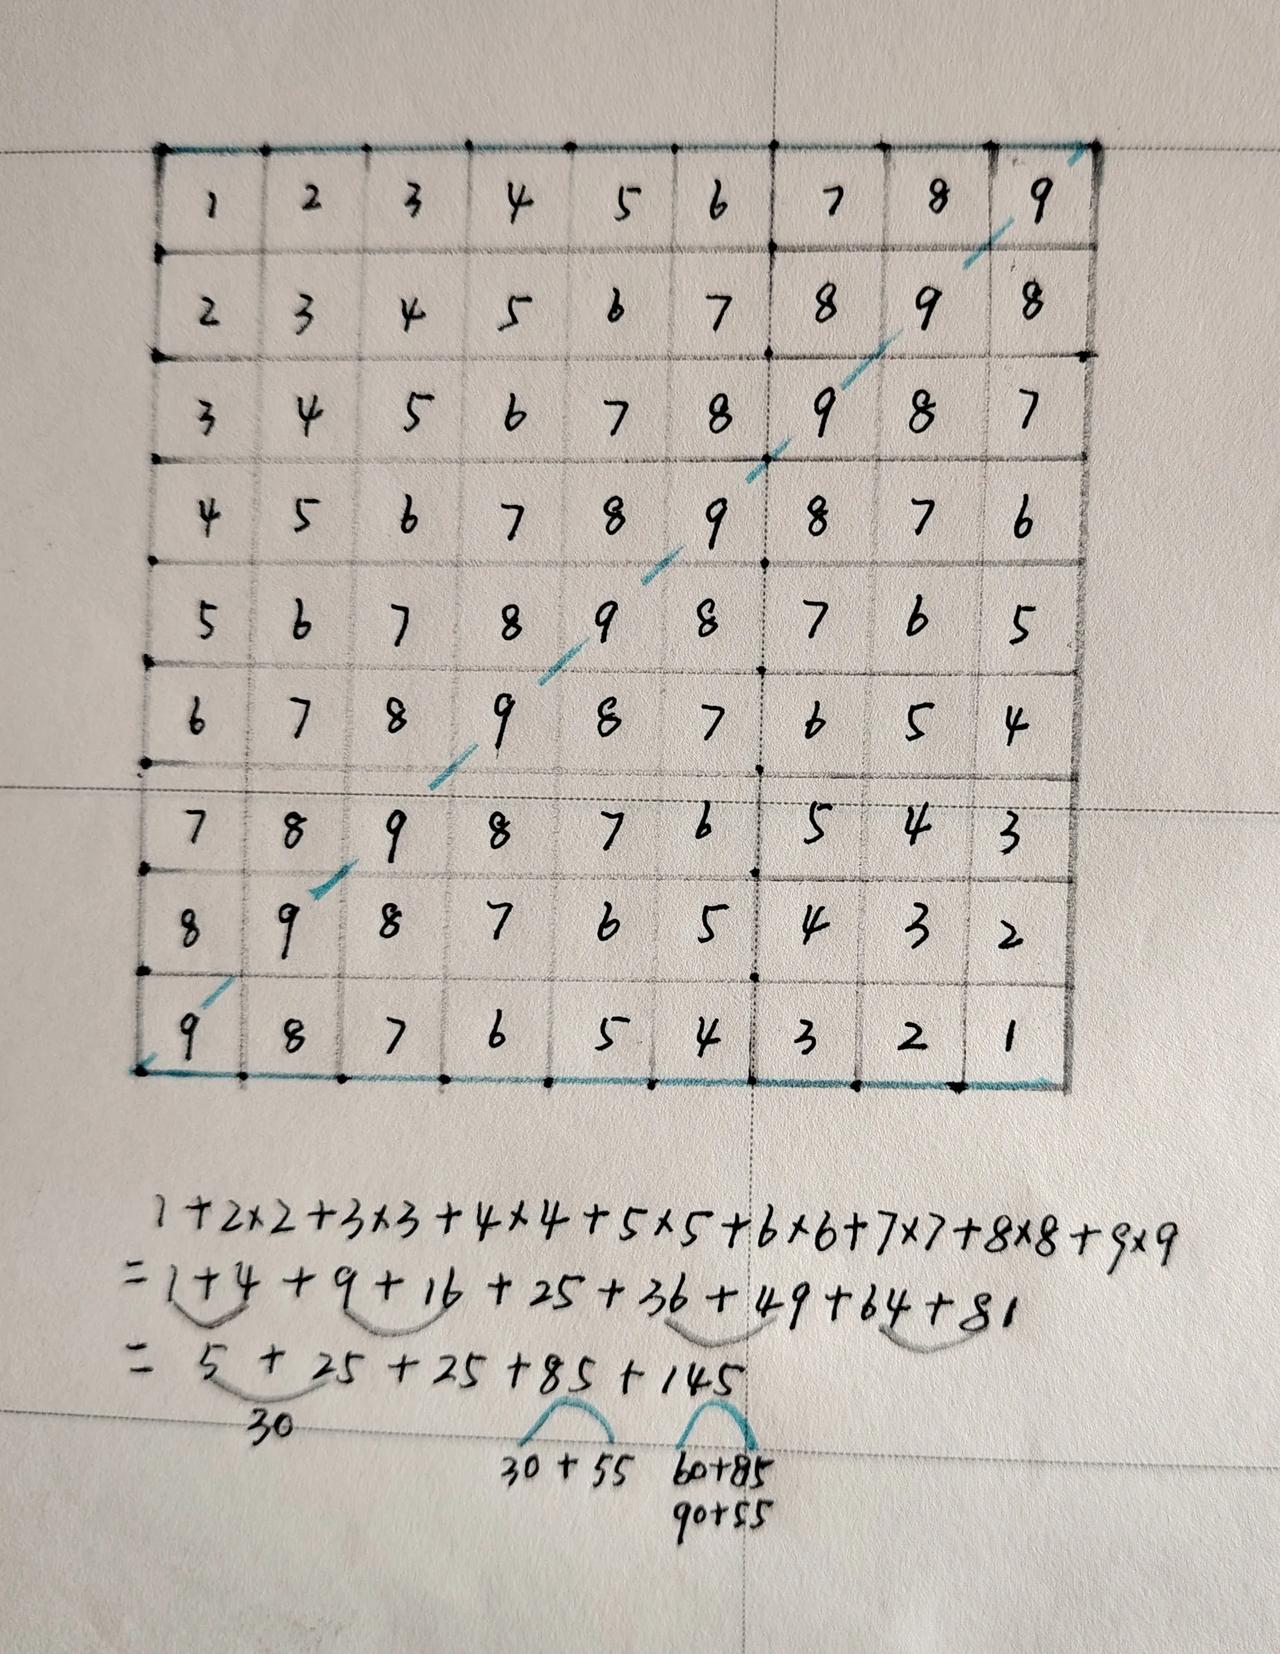 1 2 3 4 5 6 7 8 9
2 3 4 5 6 7 8 9 8
3 4 5 6 7 8 9 8 7
4 5 6 7 8 9 8 7 6
5 6 7 8 9 8 7 6 5
6 7 8 9 8 7 6 5 4
7 8 9 8 7 6 5 4 3
8 9 8 7 6 5 4 3 2
9 8 7 6 5 4 3 2 1
1+2×2+3×3+4×4+5×5+6×6+7×7+8×8+9×9
=1+4+9+16+25+36+49+64+81
=5+25+25+85+145
30 30+55 60+85
90+55